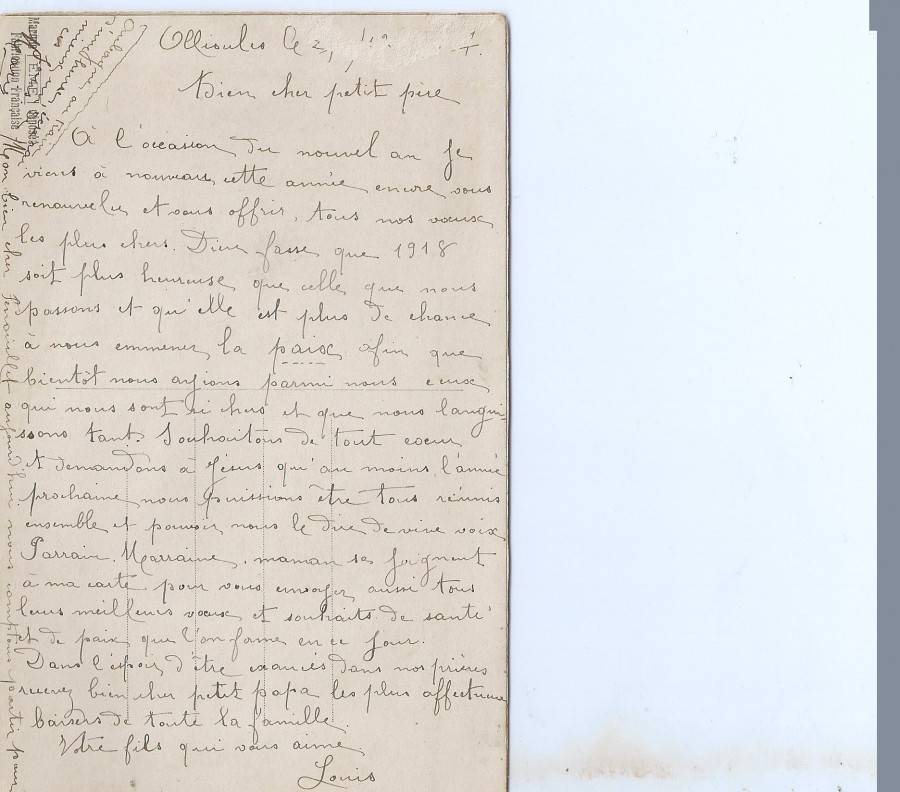 Ollioules le 2,
Bien cher petit père
A l'occasion du nouvel an je
viens à nouveau cette année encore vous
renouveler et vous offrir, tous nos vœux
les plus chers. Dieu fasse que 1918
soit plus heureuse que celle que nous
passons et qu'elle est plus de chance
à nous emmener la paix afin que
bientôt nous ayions parmi nous ceux
qui nous sont si chers et que nous langui-
ssons tant. Souhaitons de tout cœur
et demandons à Jésus qu'au moins l'année
prochaine nous puissions être tous réunis
ensemble et pouvoir nous le dire de vive voix
Parrain, Marraine, maman se joignent
à ma carte pour vous envoyer aussi tous
leurs meilleurs vœux et souhaits de santé
et de paix que l'on forme en ce jour.
Dans l'éspoir d'être exaucés dans nos prières
recevez bien cher petit papa les plus affectueux
baisers de toute la famille.
Votre fils qui vous aime
Louis
Mon bien cher aujourd'hui nous comptons partir pour
Aubagne
Marque Déposée
Fabrication Française